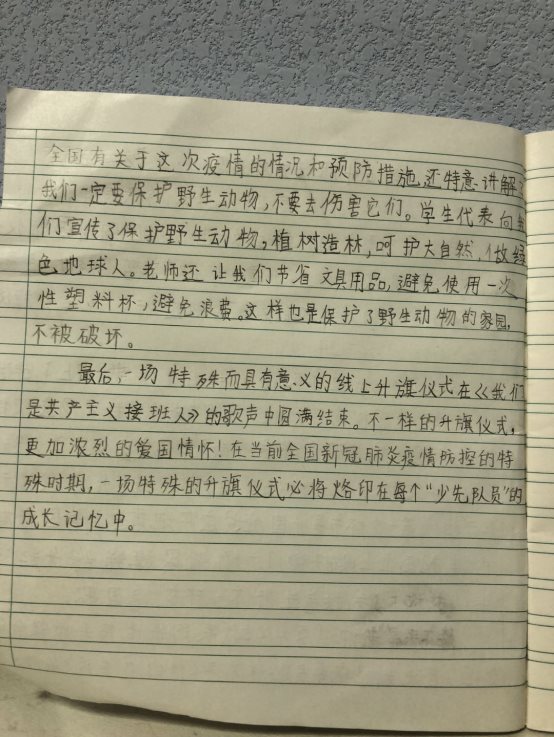 全国有关于这次疫情的情况和预防措施,还特意讲解了
我们一定要保护野生动物,不要去伤害它们。学生代表向我
们宣传了保护野生动物,植树造林,呵护大自然,做绿
色地球人。老师还让我们节省文具用品,避免使用一次
性塑料杯,避免浪费。这样也是保护了野生动物的家园,
不被破坏。
最后,一场特殊而具有意义的线上升旗仪式在《我们
是共产主义接班人》的歌声中圆满结束。不一样的升旗仪式,
更加浓烈的爱国情怀!在当前全国新冠肺炎疫情防控的特
殊时期,一场特殊的升旗仪式必将烙印在每个“少先队员”的
成长记忆中。